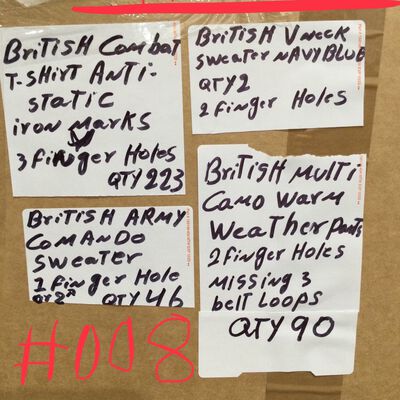 BRITISH COMBAT
T-SHIRT ANTI-
STATIC
IRON MARKS
3 FINGER HOLES
QTY 223
BRITISH V NECK
SWEATER NAVY BLUE
QTY 2
2 FINGER HOLES
BRITISH ARMY
COMANDO
SWEATER
1 FINGER HOLE
QTY 46
BRITISH MULTI
CAMO WARM
WEATHER PANTS
2 FINGER HOLES
MISSING 3
BELT LOOPS
QTY 90
#008